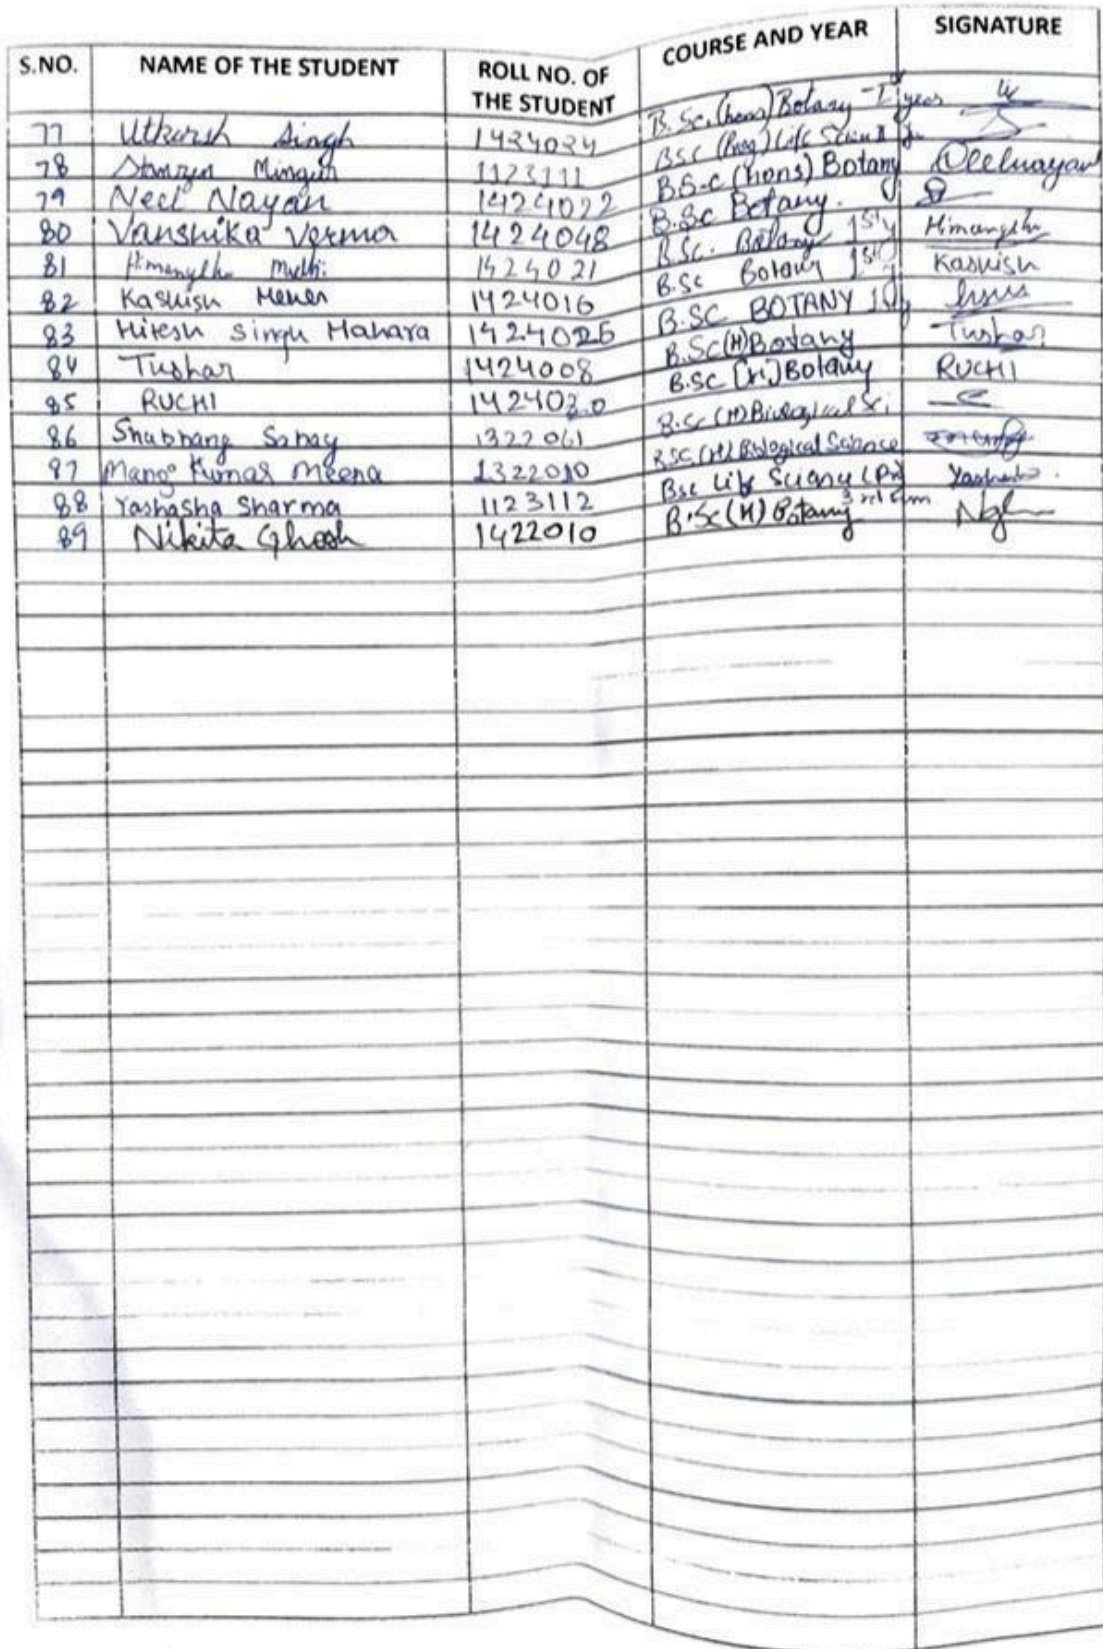 S.NO. NAME OF THE STUDENT ROLL NO. OF THE STUDENT COURSE AND YEAR SIGNATURE
77 Utkarsh Singh 1424024 B.Sc. (hons) Botany - Ist year
78 Stanzin 1123111 BSC (Prog) Life II
79 Neel Nayan 1424022 B.S.c (hons) Botany
80 Vanshika Verma 1424048 B.Sc Botany.
81 Himangshu 1424021 B.Sc. Botany 1st y Himangshu
82 Kashish 1424016 B.Sc Botany 1st Kashish
83 Hitesh Singh Mahara 1424026 B.SC BOTANY
84 Tushar 1424008 B.Sc(H)Botany Tushar
85 RUCHI 1424030 B.Sc (H) Botany RUCHI
86 1322061 B.Sc (H) Biological Sci
87 Kumar Meena 1322010 B.SC. (H) Biological Science
88 Yashasha Sharma 1123112 Bsc Life
89 Nikita Ghosh 1422010 B.Sc (H) Botany